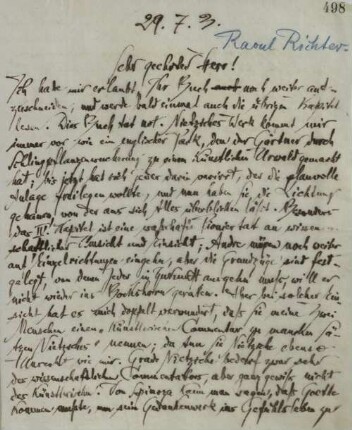 498
29. 7. 3.
Raoul Richter.
Sehr geehrter Herr!
Ich habe mir erlaubt, Ihr Buch noch weiter auf-
zuschneiden, und werde bald einmal auch die übrigen Kapitel
lesen. Dies Buch tat not. Nietzsches Werk kommt mir
immer vor wie ein englischer Park, den der Gärtner durch
Schlingpflanzen zu einem künstlichen Urwald gemacht
hat; bis jetzt hat sich jeder darin verirrt, der die planvolle
Anlage freilegen wollte, und nun haben Sie die Lichtung
gefunden, von der aus sich Alles überblicken läßt.
das IV. Kapitel ist eine wahrhafte Pioniertat an wissen-
schaftlicher Aussicht und Einsicht; Andre mögen noch weiter
auf Einzelrichtungen eingehn, aber die Grundzüge sind fest-
gelegt, von denen Jeder in Zukunft ausgehn muß, will er
nicht wieder ins Bockshorn geraten. Aber bei solcher Ein-
sicht hat es mich doppelt verwundert, daß Sie meine Zwei
Menschen einen künstlerischen Commentar zu manchen Sät-
zen Nietzsches nennen; da tun Sie Nietzsche ebenso
Unrecht wie mir. Grade Nietzsche bedarf zwar sehr
des wissenschaftlichen Commentators, aber ganz gewiß nicht
des künstlerischen. Von Spinoza kann man sagen, daß Goethe
kommen mußte, um sein Gedankenwerk ins Gefühlsleben zu